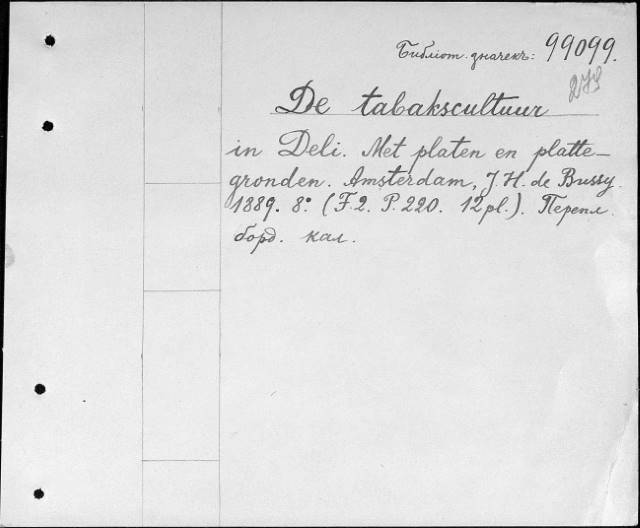 Библіот. значекъ: 99099.
273
De tabakscultuur
in Deli. Met platen en platte-
gronden. Amsterdam, J. H. de Bussy.
1889. 8° (F. 2. P. 220. 12 pl.). Перепл.
борд. кал.